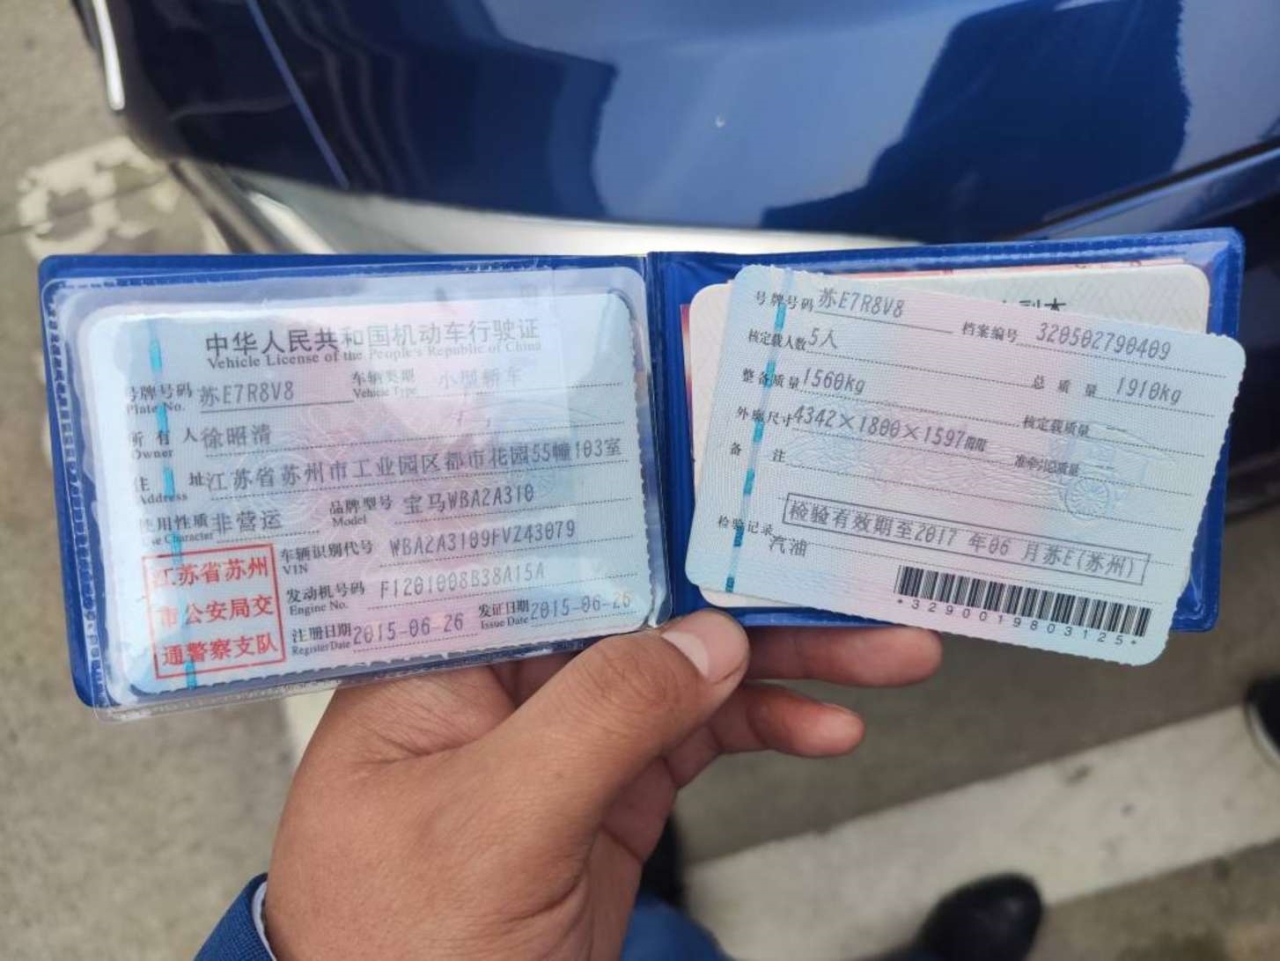 中华人民共和国机动车行驶证
Vehicle License of the People's Republic of China
号牌号码 苏E7R8V8 车辆类型 小型轿车
Plate No. Vehicle Type
所有人 徐昭清
Owner
住址 江苏省苏州市工业园区都市花园55幢103室
Address
使用性质 非营运 品牌型号 宝马WBA2A310
Use Character Model
车辆识别代号 WBA2A3109FVZ43079
VIN
发动机号码 F1201008B38A15A
Engine No.
注册日期 2015-06-26 发证日期 2015-06-26
Register Date Issue Date
江苏省苏州
市公安局交
通警察支队
副本
号牌号码 苏E7R8V8 档案编号 320502790409
核定载人数 5人 总质量 1910kg
整备质量 1560kg 核定载质量
外廓尺寸 4342×1800×1597 准牵引总质量
备注
检验有效期至2017 年06 月苏E(苏州)
检验记录
汽油
*3290019803125*